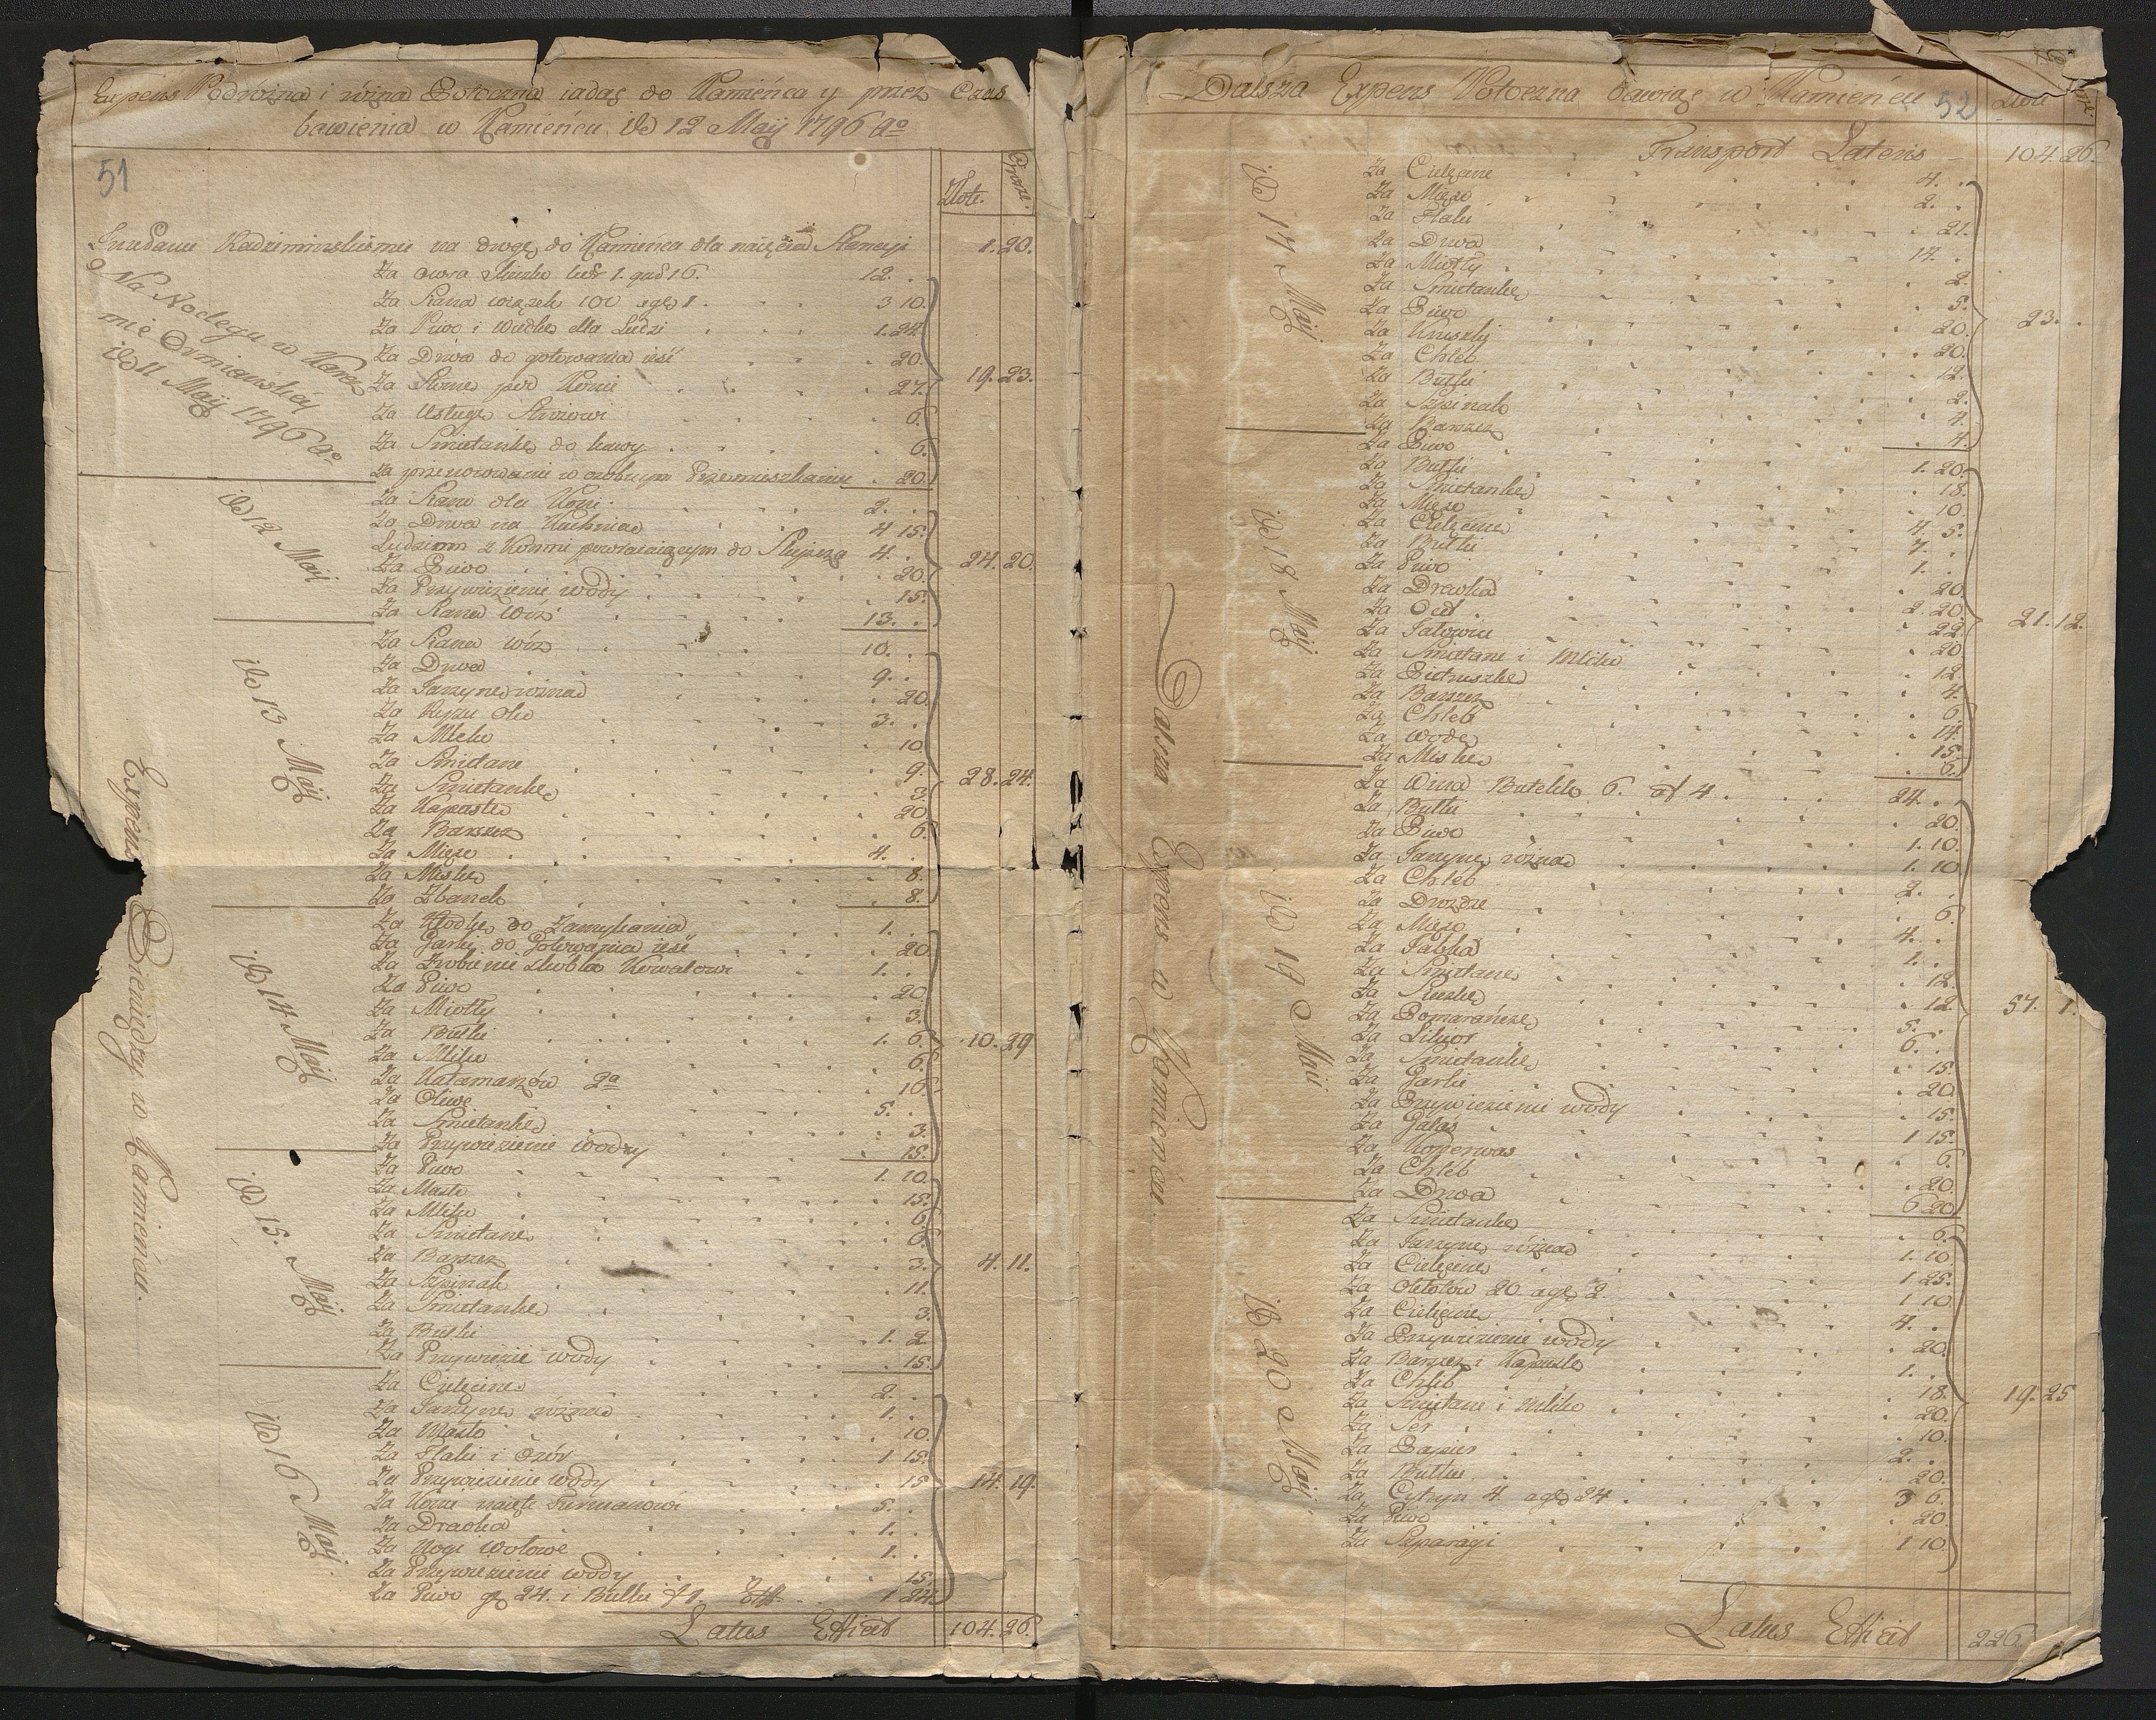 Expens Podrożna i rożna Potoczna iadąc do Kamieńca y przez Czas
bawienia w Kamieńcu. de 12 Maÿ 1796 Ao
51
Złote. Grosze.
na drogę do Kamieńca dla naięcia Stancyi 1. 20.
Na Noclegu w Karcz
mie
de 11 Maÿ 1796 Ao
Za owsa 12. .
Za Siana wiązek 100 3 10.
Za Piwo i Wodkę dla Ludzi 1. 24.
Za Drwa do gotowania ieść . 20.
Za Słomę pod Konie . 27. 19. 23.
Za Usługę Stróżowi . 6.
Za Smietankę do kawy . 6.
Za przenocowanie w osobnym Pomieszkaniu . 20.
de 12 Maÿ
Za Siano dla Koni 2. .
Za Drwa na Kuchnią 4 15.
Ludziom z Końmi powracaiącym do 4. .
Za Piwo . 20. 24. 20.
Za Przywiezienie wody . 15.
Za Siana Wóz 13. .
de 13 Maÿ
Za Siana wóz 10. .
Za Drwa 9. .
Za Jarzynę rożną . 20.
Za Ryżu Oko 3. .
Za Mleko . 10.
Za Smietanę . 9.
Za Smietankę . 3. 28. 24.
Za Kapustę . 20.
Za Barszcz . 6.
Za Mięso 4. .
Za Miskę . 8.
Za Zbanek . 8.
de 14 Maÿ
Za Kłodkę do Zamykania 1. .
Za Garki do Gotowania ieść . 20.
Za Zrobienie Skobla Kowalowi 1. .
Za Piwo . 20.
Za Miotły . 3.
Za Bułki 1. 6. 10. 29
Za Mleko . 6.
Za Kałamarzów 2a . 16.
Za Oliwę 5. .
Za Smietankę . 3.
Za Przywiezienie Wody . 15.
de 15. Maÿ
Za Piwo 1. 10.
Za Masło . 15.
Za Mleko . 6.
Za Smietanę . 6.
Za Barszcz . 3. 4. 11.
Za Szpinak . 11.
Za Smietankę . 3.
Za Bułki 1. 2.
Za Przywiezie wody . 15.
de 16 Maÿ
Za Cielęcinę 2. .
Za Jarzynę rożną 1. .
Za Masło . 10.
Za Flaki i Ozór 1 15.
Za Przywiezienie wody . 15. 14. 19.
Za Konie naięte Furmanowi 5. .
Za Draczka 1. .
Za Nogi wołowe 1. .
Za Przywiezienie wody . 15.
Za Piwo gr 24. i Bułki 1 24.
Expens Pieniędzy w Kamieńcu.
Latus Efficit 104. 26.
Dalsza Expens Potoczna bawiąc w Kamieńcu
52
Transport Lateris 104 26.
de 17 Maÿ
Za Cielęcinę 4. .
Za Mięso 2. .
Za Flaki . 21.
Za Drwa 14. .
Za Miotły . 2.
Za Smietankę . 5.
Za Piwo . 20. 23. .
Za Kruszki . 20.
Za Chleb . 12.
Za Bułki . 2.
Za Szpinak . 4.
Za Barszcz . 4.
de 18 Maÿ
Za Piwo 1. 20.
Za Bułki . 18.
Za Smietankę . 10.
Za Mięso 4. 5.
Za Cielęcinę 7. .
Za Bułki 1. .
Za Piwo . 20.
Za Draczka 2. 20. 21. 12.
Za Ocet . 22.
Za Jałowiec . 20.
Za Smietanę i Mleko . 12.
Za Pietruszkę . 4.
Za Barszcz . 6.
Za Chleb . 14.
Za Wodę . 15.
Za Miskę . 6.
de 19 Maÿ
Za Wina Butelek 6. at 4 24. .
Za Bułki . 20.
Za Piwo 1. 10.
Za Jarzynę rożną 1. 10
Za Chleb 2. .
Za Drożdze . 6.
Za Mięso 4. .
Za Jabłka 1. .
Za Smietanę . 12.
Za . 12.
Za Pomarańcze 5. . 57. 1.
Za Likwor 6. .
Za Smietankę . 15.
Za Garki . 20.
Za Przywiezienie wody . 15.
Za Gałas 1 15.
Za Koperwas . 6.
Za Chleb . 20.
Za Drwa 6 20.
de 20 Maÿ
Za Smietankę . 6.
Za Jarzynę rożną 1. 10
Za Cielęcinę 1 25.
Za 20 agr 2 1 10
Za Cielęcinę 4. .
Za Przywiezienie wody . 20.
Za Barszcz i Kapustę 1. .
Za Chleb . 18. 19. 25
Za Smietanę i mleko . 20.
Za Ser . 10.
Za Papier 2. .
Za Bułki . 20.
Za Cytryn 4 agr 24 3 6.
Za Piwo . 20.
Za Szparagi 1 10.
Dalsza Expens w Kamieńcu.
Latus Efficit 226.